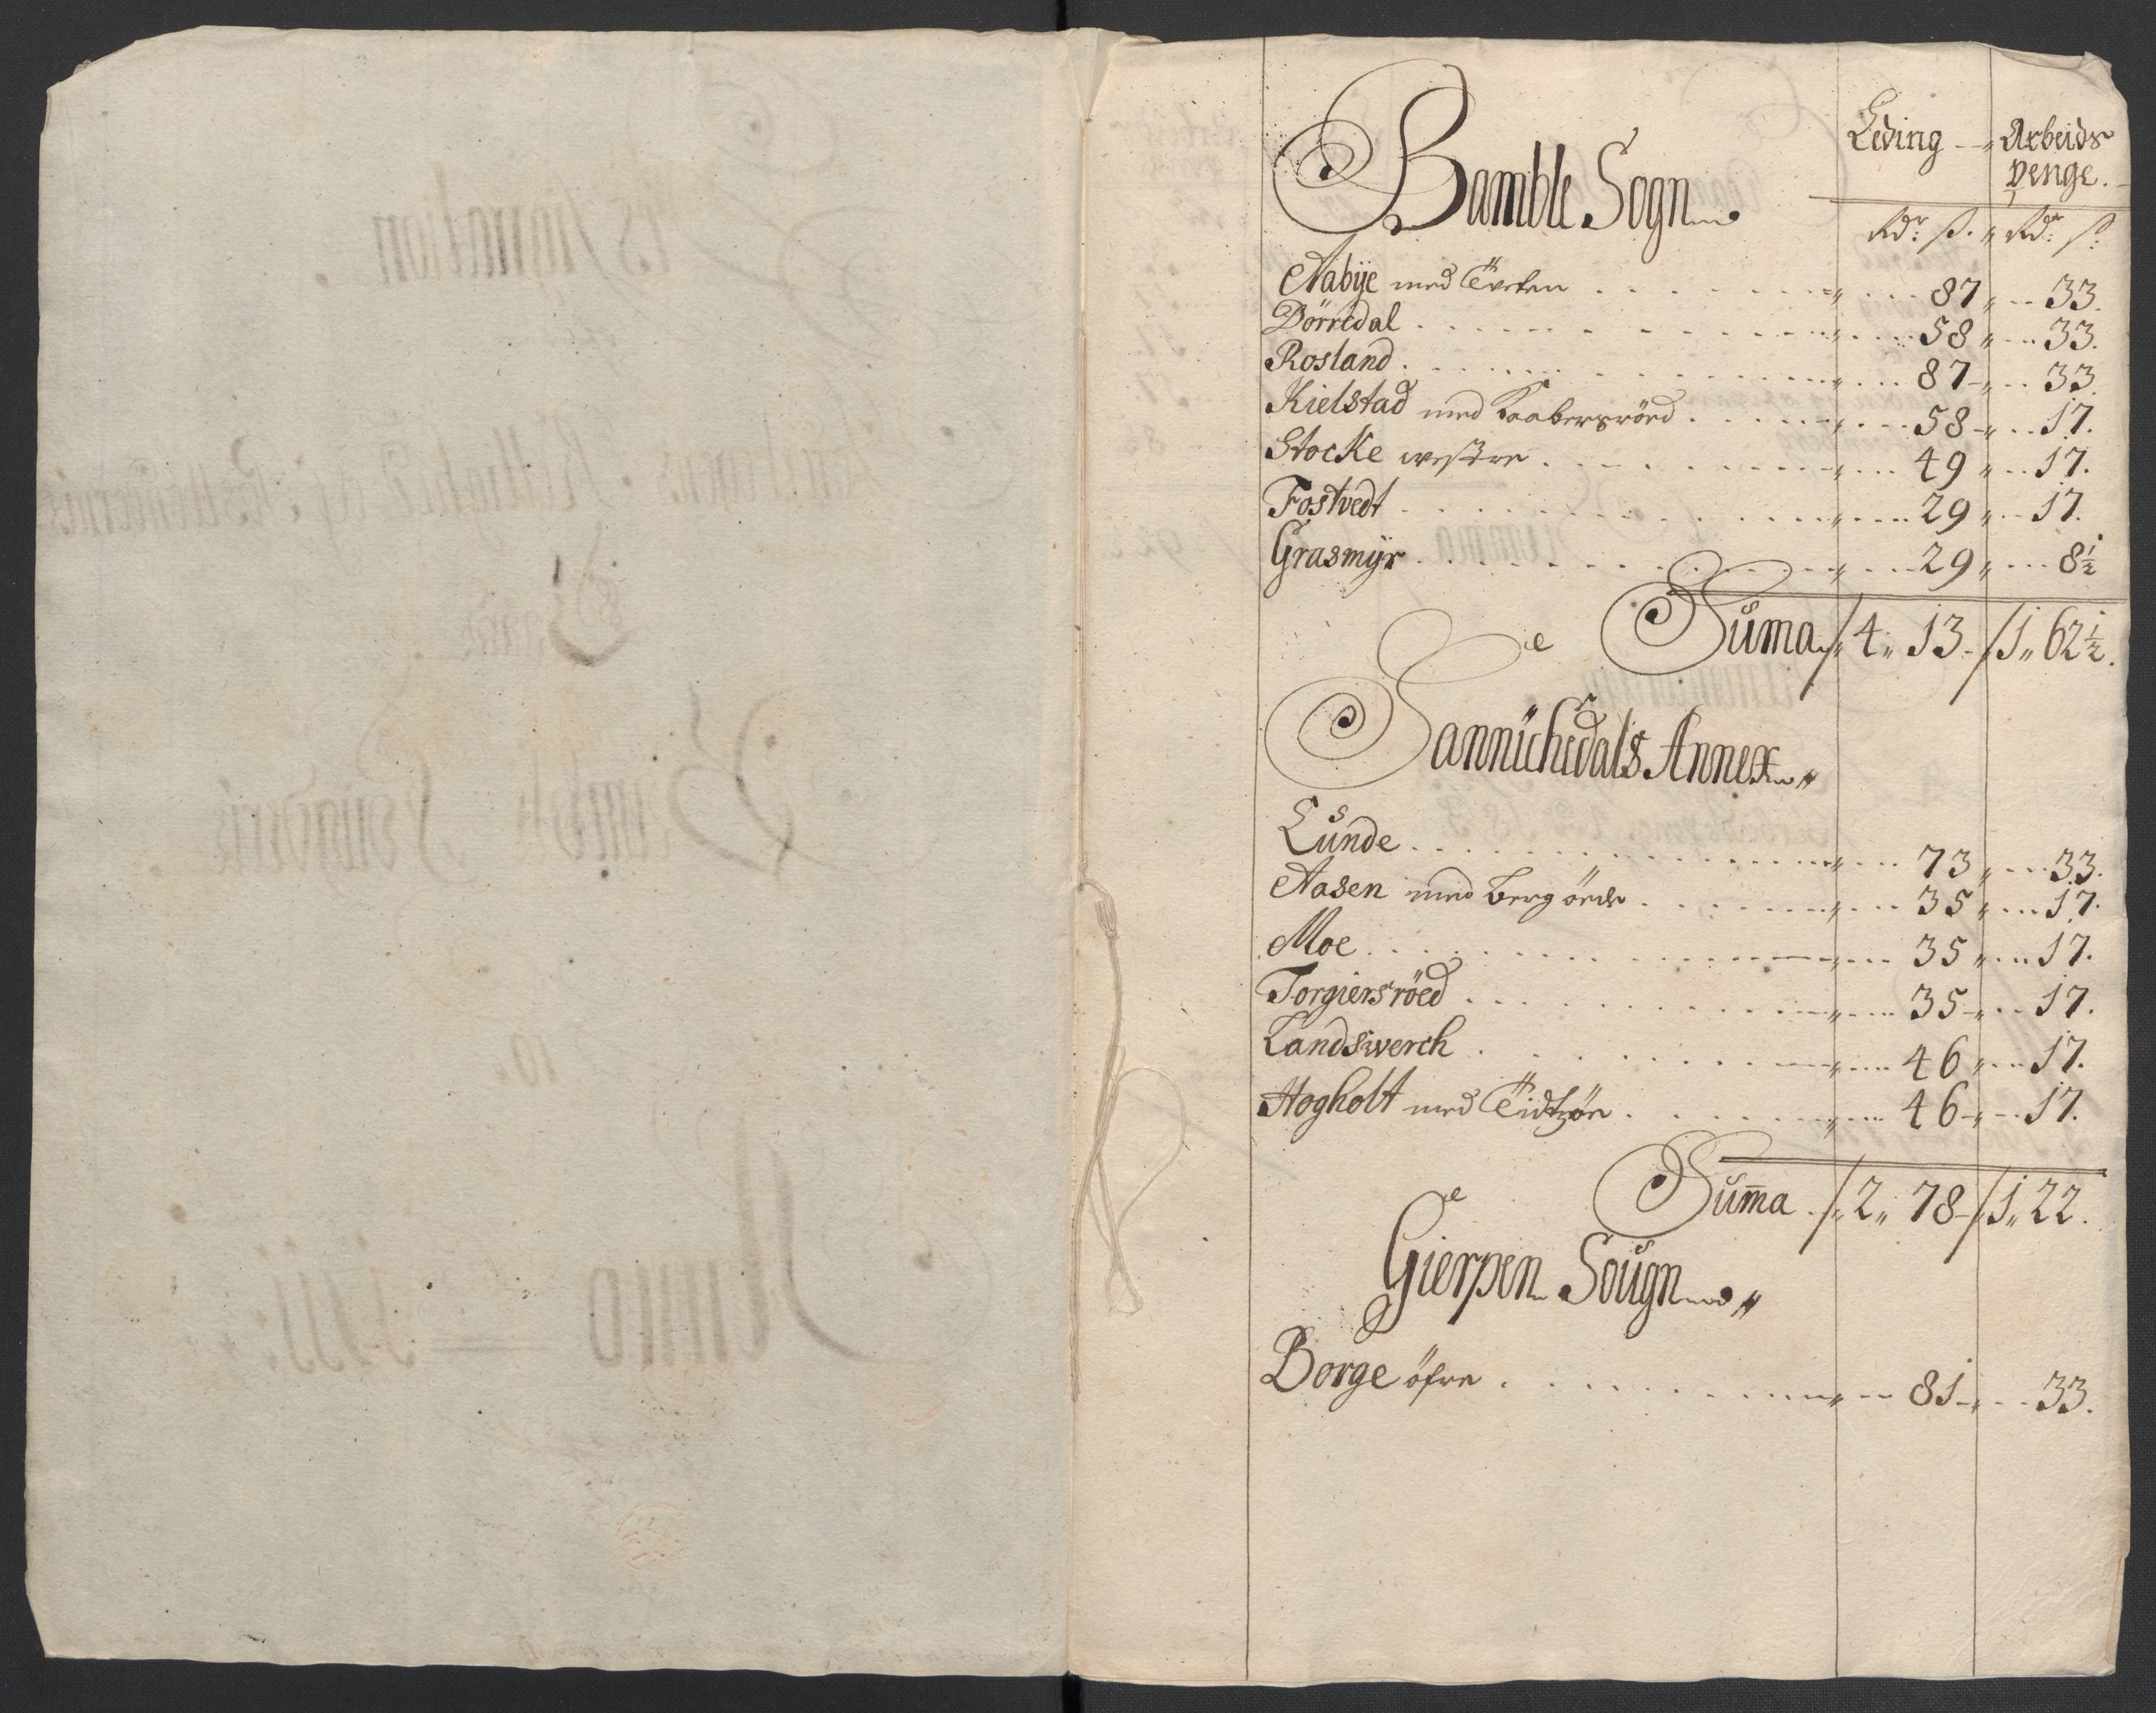 Leding Arbeids
penge.
Bamble Sogn
Rdr: ß. Rdr: ß:
Aabÿe med Tveten 87 33.
Dörredal 58 33.
Rosland 87 33
Kielstad med Kaabersröed 58 17.
Stocke westre 49 17.
Fostvedt 29 17.
Grasmÿr 29 8½
Suma 4 13 1 62½.
Sannichedals Annex
Lunde 73 33.
Aasen med 35 17.
Moe 35 17.
Torgiersröed 35 17.
Landswerch 46 17.
Hogholt med 46 17.
Suma 2 78 1 22.
Gierpen Sougn
Borge öfre 81 33.